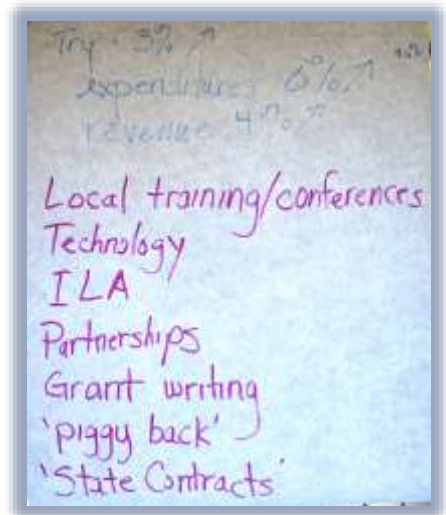 Try · 3% ↗
expenditures 6% ↗
revenue 4% ↗
Local training/conferences
Technology
ILA
Partnerships
Grant writing
'piggy back'
'State Contracts'